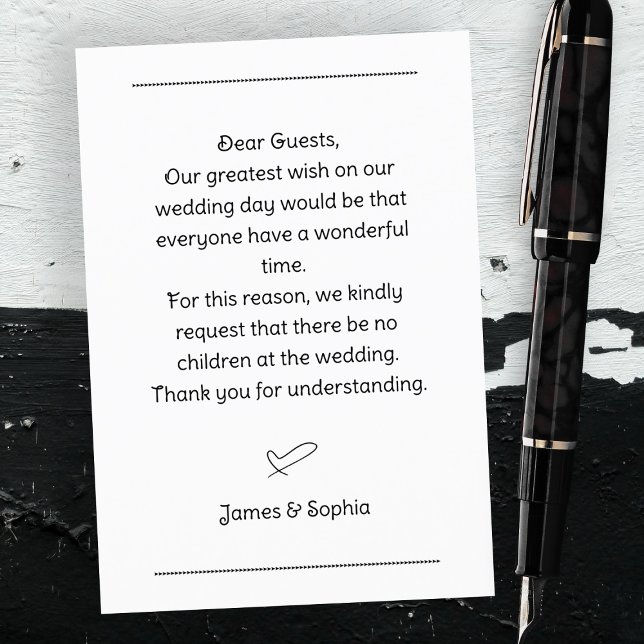 Dear Guests,
Our greatest wish on our
wedding day would be that
everyone have a wonderful
time.
For this reason, we kindly
request that there be no
children at the wedding.
Thank you for understanding.
James & Sophia